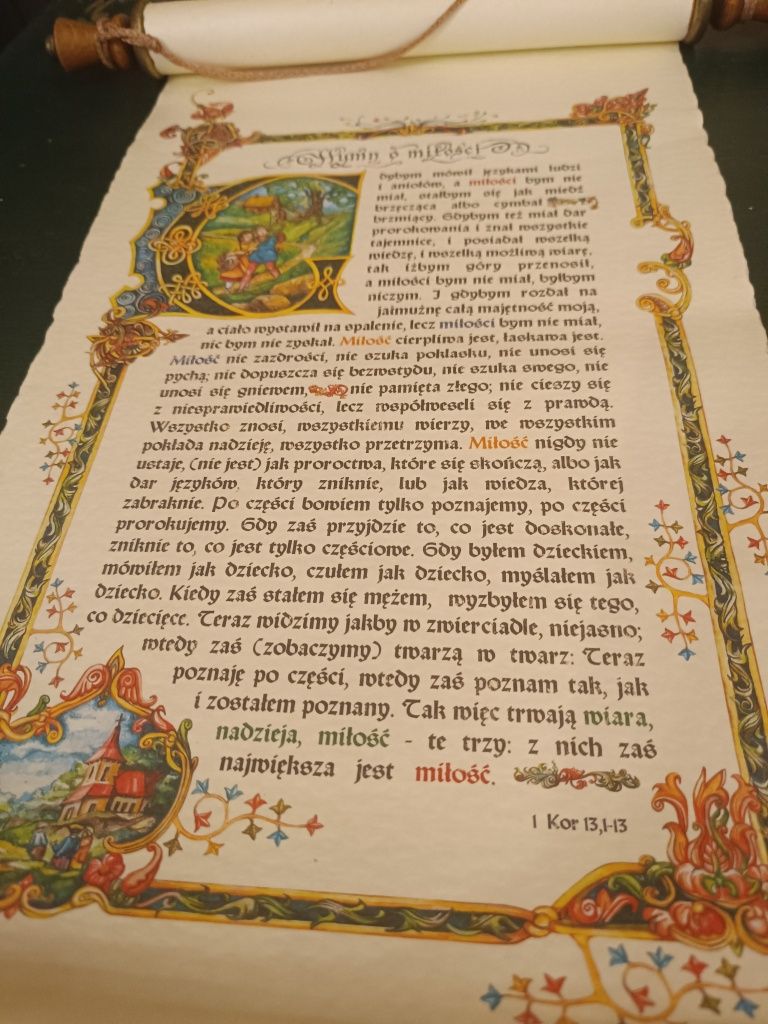 Hymn o miłości
Gdybym mówił językami ludzi
i aniołów, a miłości bym nie
miał, stałbym się jak miedź
brzęcząca albo cymbał
brzmiący. Gdybym też miał dar
prorokowania i znał wszystkie
tajemnice, i posiadał wszelką
wiedzę, i wszelką możliwą wiarę,
tak iżbym góry przenosił,
a miłości bym nie miał, byłbym
niczym. I gdybym rozdał na
jałmużnę całą majętność moją,
a ciało wystawił na spalenie, lecz miłości bym nie miał,
nic bym nie zyskał. Miłość cierpliwa jest, łaskawa jest.
Miłość nie zazdrości, nie szuka poklasku, nie unosi się
pychą; nie dopuszcza się bezwstydu, nie szuka swego, nie
unosi się gniewem, nie pamięta złego; nie cieszy się
z niesprawiedliwości, lecz współweseli się z prawdą.
Wszystko znosi, wszystkiemu wierzy, we wszystkim
pokłada nadzieję, wszystko przetrzyma. Miłość nigdy nie
ustaje, (nie jest) jak proroctwa, które się skończą, albo jak
dar języków, który zniknie, lub jak wiedza, której
zabraknie. Po części bowiem tylko poznajemy, po części
prorokujemy. Gdy zaś przyjdzie to, co jest doskonałe,
zniknie to, co jest tylko częściowe. Gdy byłem dzieckiem,
mówiłem jak dziecko, czułem jak dziecko, myślałem jak
dziecko. Kiedy zaś stałem się mężem, wyzbyłem się tego,
co dziecięce. Teraz widzimy jakby w zwierciadle, niejasno;
wtedy zaś (zobaczymy) twarzą w twarz: Teraz
poznaję po części, wtedy zaś poznam tak, jak
i zostałem poznany. Tak więc trwają wiara,
nadzieja, miłość - te trzy: z nich zaś
największa jest miłość.
1 Kor 13,1-13